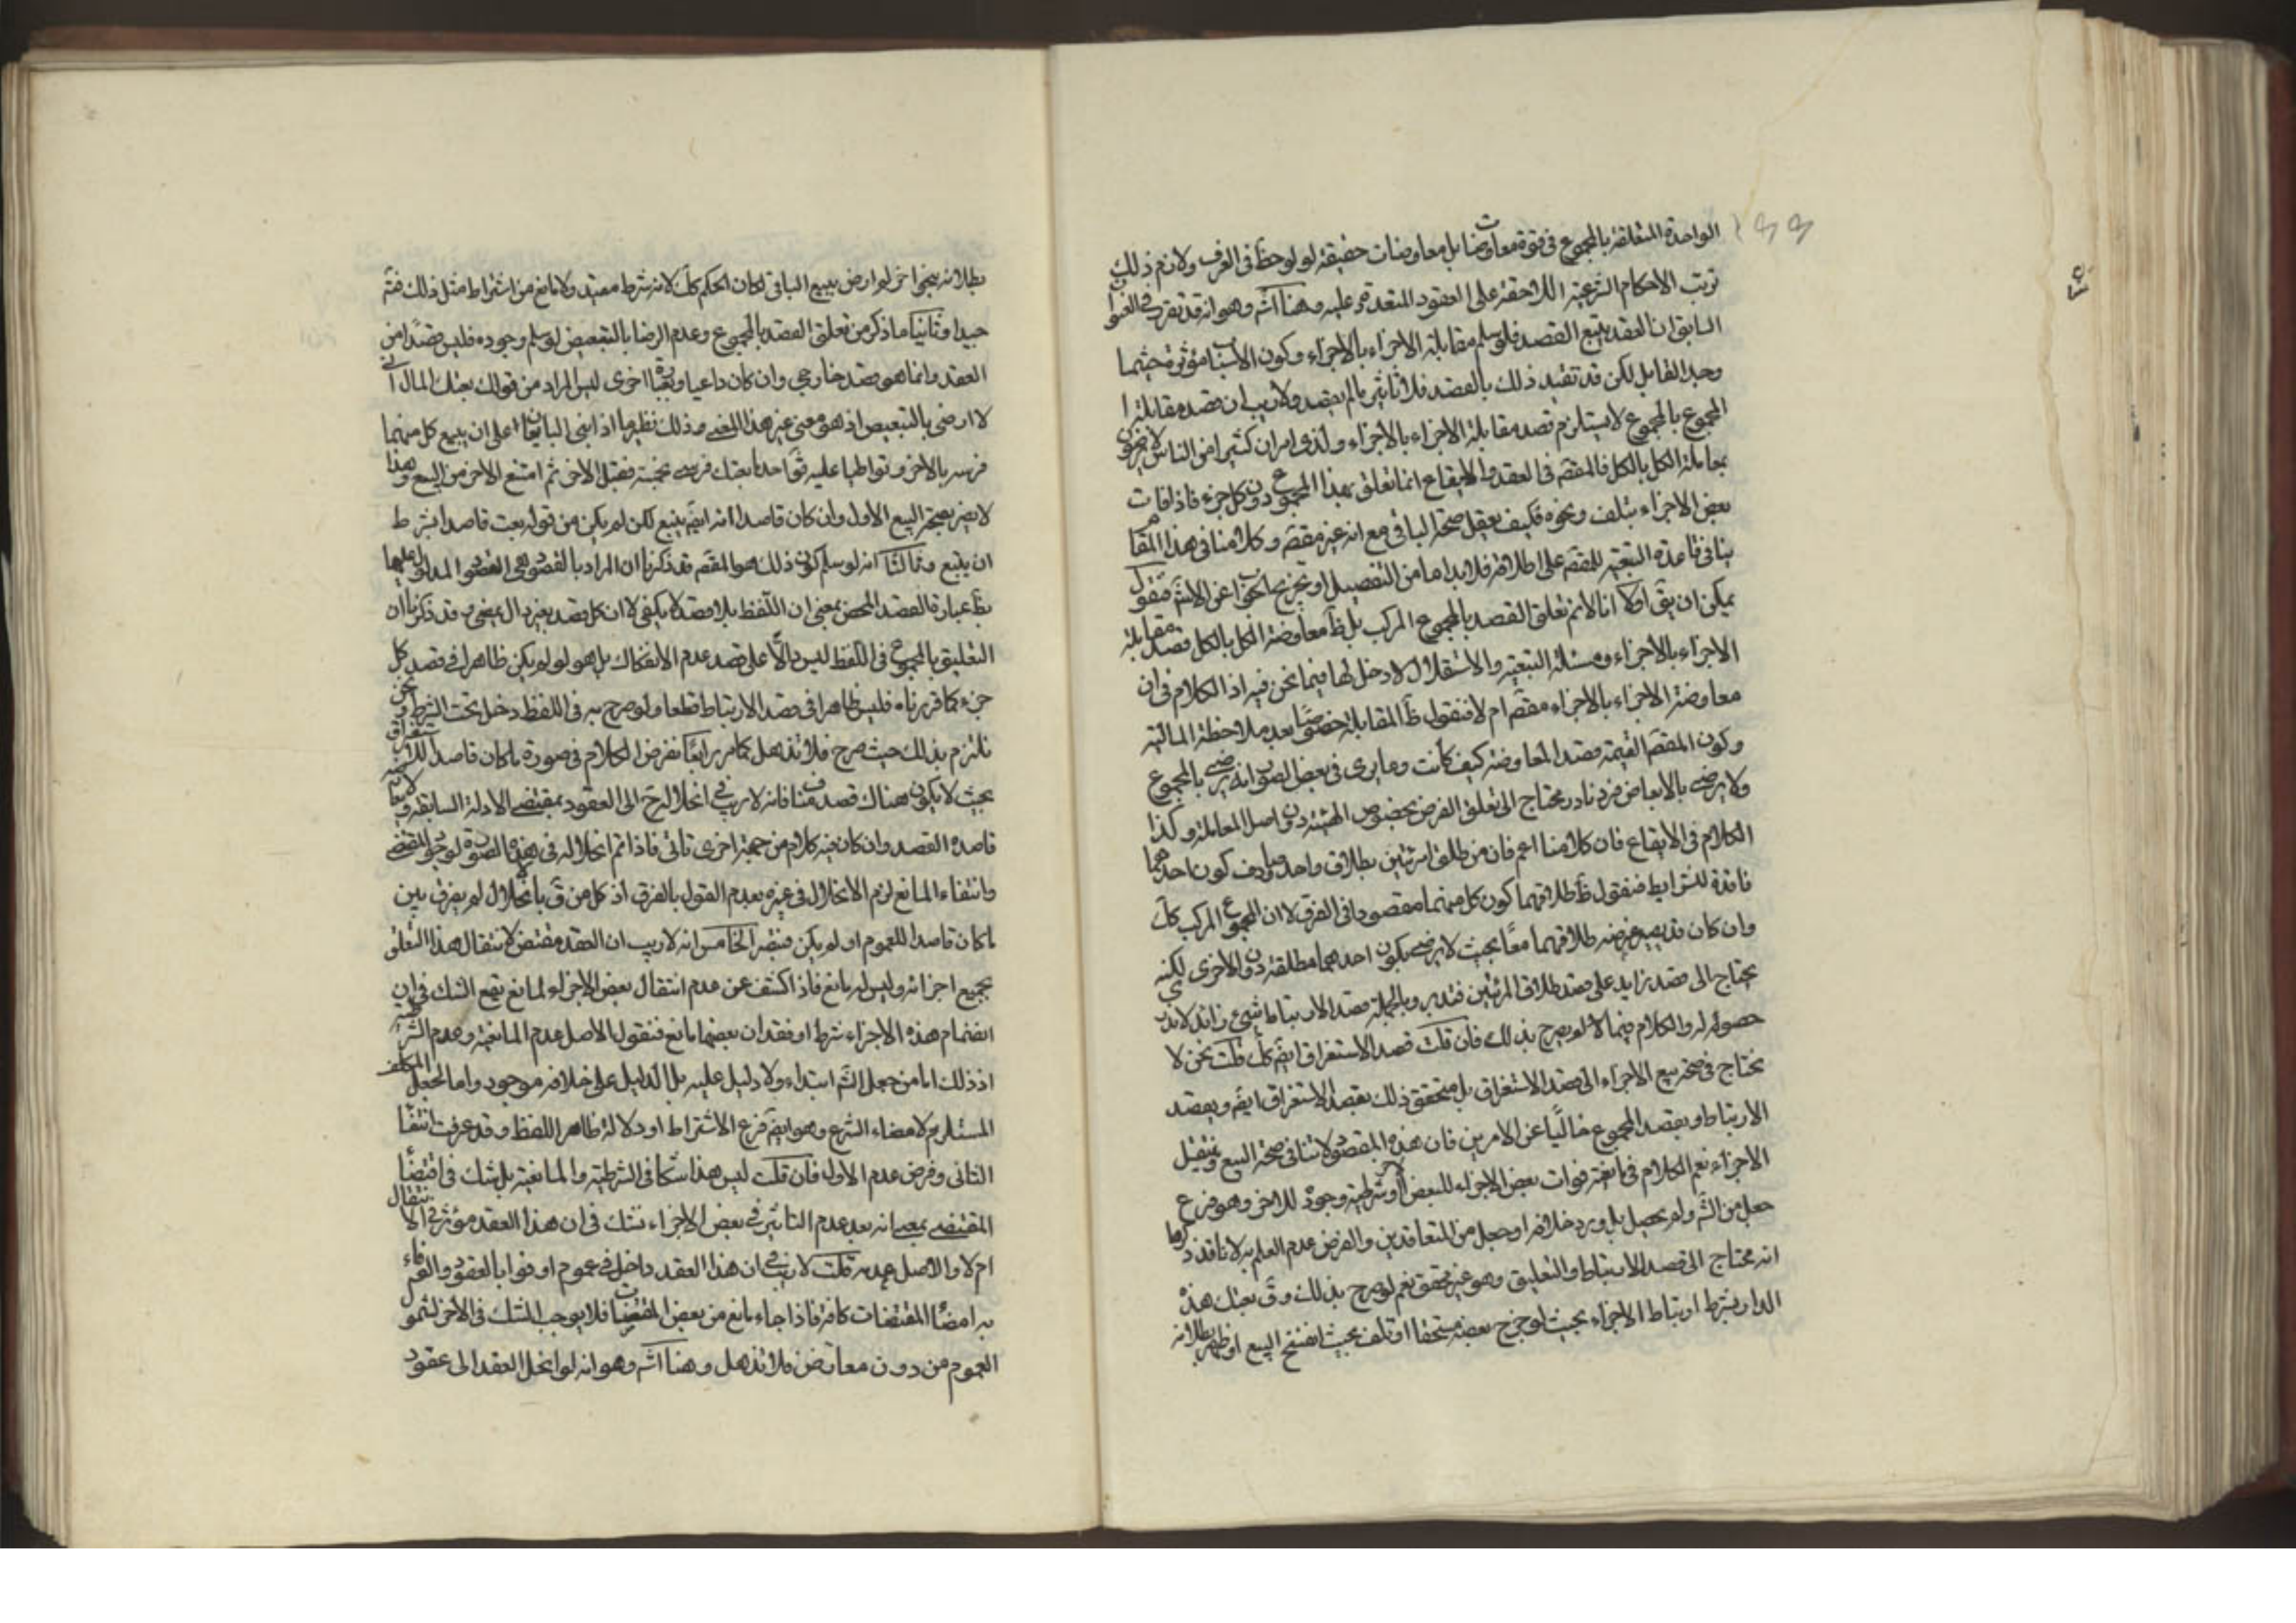 الواحدة المتعلقة بالمجموع فى قوة معاوضات بل معاوضات حقيقة لو لوحظ فى العرف ولازم ذلك
ترتب الاحكام الشرعية اللاحقة على العقود المتعددة عليه وهنا اشـ وهو انه قد تقرر فى العنوان
السابق ان العقد يتبع القصد فلو سلم مقابلة الاجزاء بالاجزاء وكون الاسباب مؤثرة حيثما
وجد القابل لكن قد تقيد ذلك بالقصد فلا تاثير بما لم يقصد ولا ريب ان قصد مقابلة
المجموع بالمجموع لا يستلزم قصد مقابلة الاجزاء بالاجزاء ولذا ان كثيرا من الناس لا يرضون
بمعاملة الكل بالكل فالمقصـ فى العقد والايقاع انما تعلق بهذا المجموع دون كل جزء فاذا فات
بعض الاجزاء بتلف ونحوه فكيف يعقل صحة الباقى مع انه غير مقصـ وكلامنا فى هذا المقام
ينافى قاعدة التبعية للقصـ على اطلاقه فلا بد اما من التفصيل او تخريج الجواب عن الاشـ فنقول
يمكن ان يقـ اولا انا لا نم تعلق القصد بالمجموع المركب بل ظـ معاوضة الكل بالكل قصد مقابلة
الاجزاء بالاجزاء ومسئلة التبعية والاستقلال لا دخل لها فيما نحن فيه اذ الكلام فى ان
معاوضة الاجزاء بالاجزاء مقصـ ام لا فنقول ظـ المقابلة خصوصا بعد ملاحظة المالية
وكون المقصـ القيمة قصد المعاوضة كيف كانت وما يرى فى بعض الصور انه يرضى بالمجموع
ولا يرضى بالابعاض فرد نادر محتاج الى تعلق الغرض بخصوص الهيئة دون اصل المعاملة وكذا
الكلام فى الايقاع فان كلامنا اعم فان من طلق امرئتين بطلاق واحد وصادف كون احدهما
فاقدة للشرايط فنقول ظـ طلاقهما كون كل منهما مقصودا فى الفرق لا ان المجموع المركب كك
وان كان قد يصير غرضه طلاقهما معا بحيث لا يرضى بكون احدهما مطلقة دون الاخرى لكنه
يحتاج الى قصد زايد على قصد طلاق المرئتين فتدبر وبالجملة قصد الارتباط شيئ زائد لا ندرى
حصوله له والكلام فيما لا لو يصرح بذلك فان قلت قصد الاستغراق ايضـ كك قلت نحن لا
نحتاج فى صحة بيع الاجزاء الى قصد الاستغراق بل يتحقق ذلك بقصد الاستغراق ايضـ وبقصد
الارتباط وبقصد المجموع خاليا عن الامرين فان هذه المقصود لا تنافى صحة البيع ونقل
الاجزاء نعم الكلام فى مانعية فوات بعض الاجزاء للبعض الاخر وشرطية وجوده للاخر وهو فرع
جعل من الشـ ولم يحصل بل ورد خلافه او جعل من المتعاقدين والفرض عدم العلم به لانا قد ذكرنا
انه محتاج الى قصد الارتباط والتعليق وهو غير محقق نعم لو صرح بذلك وقـ بعتك هذه
الدار بشرط ارتباط الاجزاء بحيث لو خرج بعضه مستحقا او تلف بحيث انفسخ البيع او ظهر بطلانه
بطلانه بنحو اخر لم ارض ببيع الباقى لكان الحكم كك لانه شرط معتبر ولا مانع من اشتراط مثل ذلك فتـ
جيدا وثانيا ما ذكر من تعلق القصد بالمجموع وعدم الرضا بالتبعيض لو سلم وجوده فليس قصدا من
العقد وانما هو قصد خارجى وان كان داعيا وبعبارة اخرى ليس المراد من قولك بعتك المال انى
لا ارضى بالتبعيض اذ هو معنى غير هذا المعنى وذلك نظير ما اذا بنى البايعان على ان يبيع كل منهما
فرسه بالاخر وتواطيا عليه فقـ احدهما بعتك فرسى بخمسة فقبل الاخر ثم امتنع الاخر من البيع وهذا
لا يضر بصحة البيع الاول وان كان قاصدا انه ايضـ يبيع لكن لم يكن من قوله بعت قاصدا بشرط
ان يبيع وثالثا انه لو سلم كون ذلك هو المقصـ قد ذكرنا ان المراد بالقصود هى القصود المدلول عليها
بظـ عبارة العقد المحض بمعنى ان اللفظ بلا قصد لا يكفى لا ان كل قصد بغير دال يمضى وقد ذكرنا ان
التعليق بالمجموع فى اللفظ ليس دالا على قصد عدم الانفكاك بل هو لو لم يكن ظاهرا فى قصد كل
جزء كما قررناه فليس ظاهرا فى قصد الارتباط قطعا ولو صرح به فى اللفظ دخل تحت الشرط ونحن
نلتزم بذلك حيث صرح فلا تذهل كما مر رابعا نفرض الكلام فى صورة ما كان قاصدا للاستغراق
بحيث لا يكون هناك قصد مناف فانه لا ريب فى انحلاله حـ الى العقود بمقتضى الادلة السابقة ولا يعارضه
قاعدة القصد وان كان فيه كلام من جهة اخرى تاتى فاذا تم انحلاله فى هذه الصورة لوجود المقتضى
وانتفاء المانع لزم الانحلال فى غيره بعدم القول بالفرق اذ كل من قـ بانحلال لم يفرق بين
ما كان قاصدا للعموم او لم يكن فتبصر الخامس انه لا ريب ان العقد مقتض لانتقال هذا المتعلق
بجميع اجزائه وليس له مانع فاذا كشف عن عدم انتقال بعض الاجزاء لمانع يقع الشك فى ان
انضمام هذه الاجزاء شرط او فقدان بعضها مانع فنقول الاصل عدم المانعية وعدم الشرطية
اذ ذلك اما من جعل الشـ ابتداء ولا دليل عليه بل الدليل على خلافه موجود واما لجعل المكلف
المستلزم لامضاء الشرع وهو ايضـ فرع الاشتراط او دلالة ظاهر اللفظ وقد عرفت انتفاء
الثانى وفرض عدم الاول فان قلت ليس هذا شكا فى الشرطية والمانعية بل شك فى اقتضاء
المقتضى بمعنى انه بعد عدم التاثير فى بعض الاجزاء نشك فى ان هذا العقد مؤثر فى الانتقال
ام لا والاصل عدمه قلت لا ريب فى ان هذا العقد داخل فى عموم اوفوا بالعقود والوفاء
به امضاء المقتضيات كافة فاذا جاء مانع من بعض المقتضيات فلا يوجب الشك فى الاخر لشمول
العموم من دون معارض فلا تذهل وهنا اشـ وهو انه لو انحل العقد الى عقود